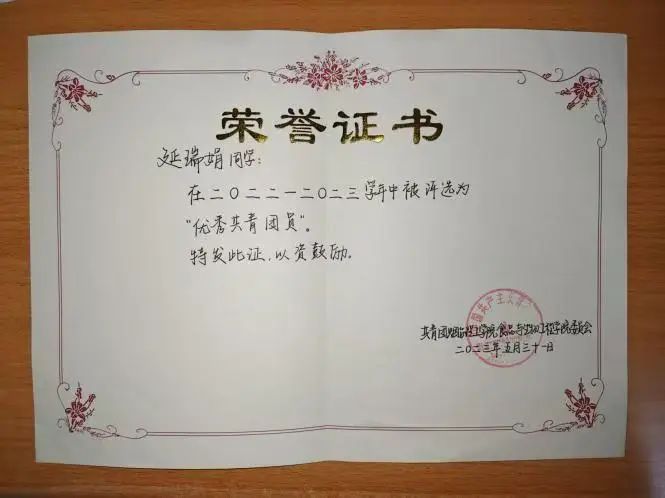 荣誉证书
延瑞娟同学：
在二〇二二一二〇二三学年中被评选为
“优秀共青团员”。
特发此证，以资鼓励。
共青团烟台理工学院食品与生物工程学院委员会
二〇二三年五月三十一日